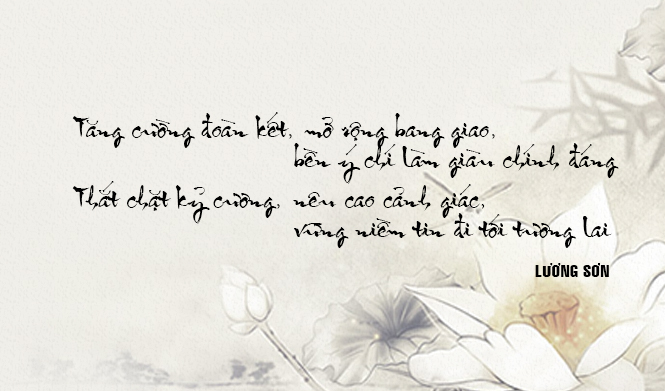 Tăng cường đoàn kết, mở rộng bang giao,
bền ý chí làm giàu chính đáng
Thắt chặt kỷ cương, nêu cao cảnh giác,
vững niềm tin đi tới tương lai
LƯƠNG SƠN